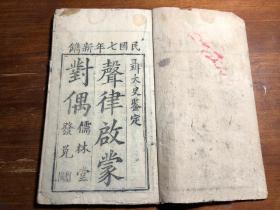 民國七年新鐫
鄒太史鑒定
聲律啟蒙
儒林堂
發兌
對偶